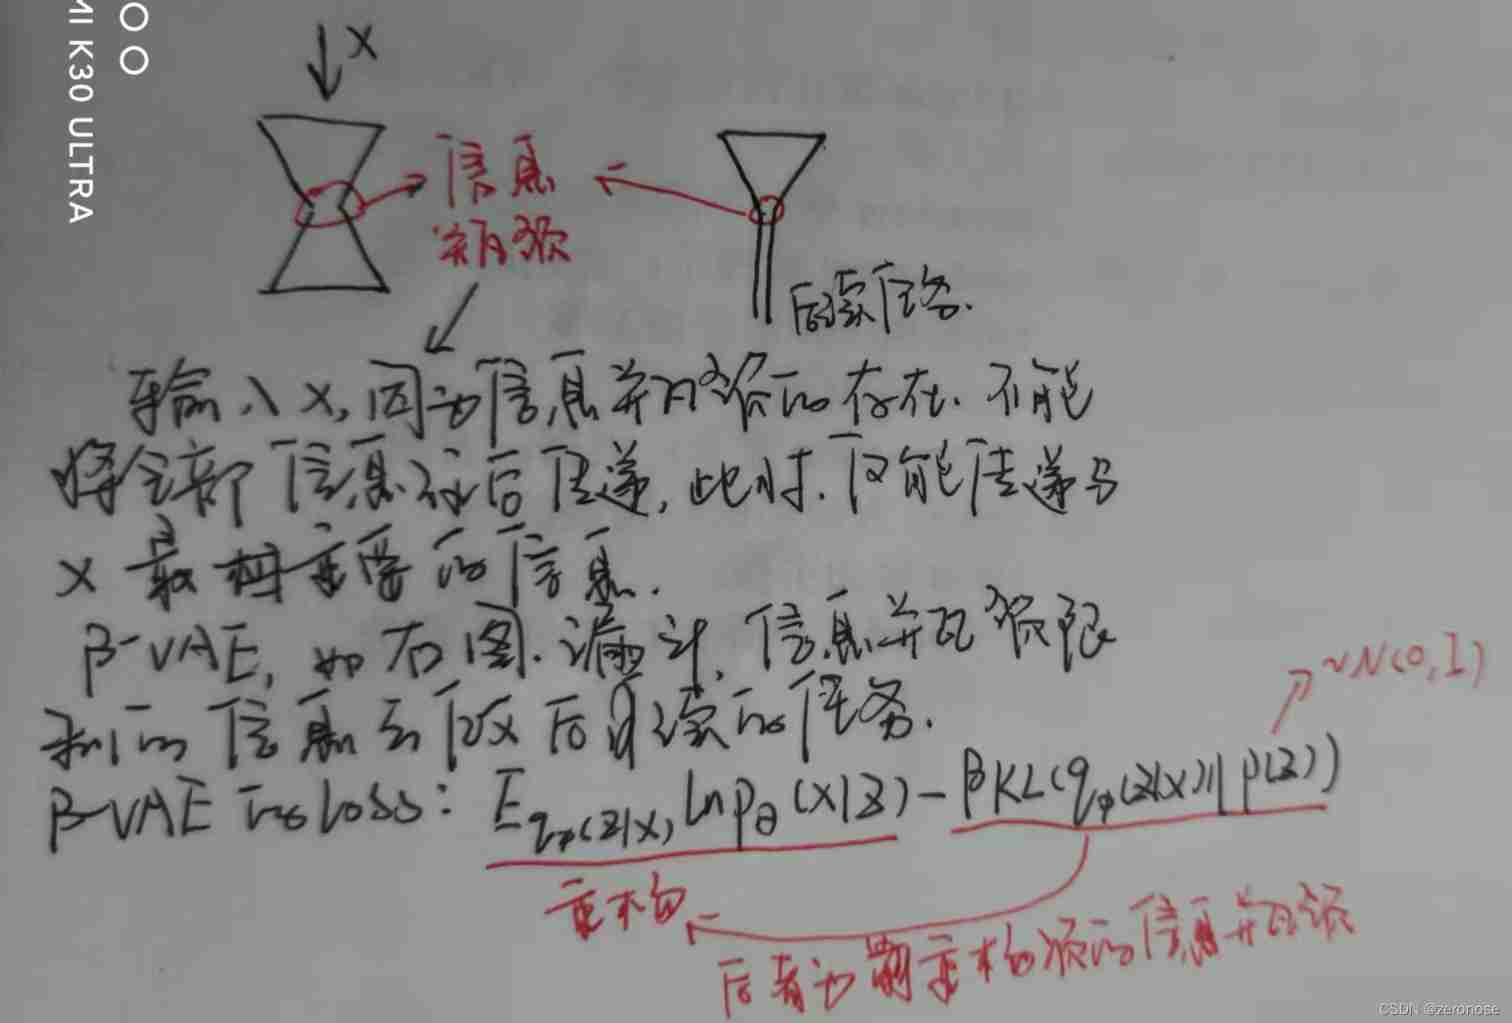 MI K30 ULTRA
X
信息
瓶颈
后续任务.
输入X,因为信息瓶颈的存在.不能
将全部信息往后传递,此时.仅能传递与
X最相重要的信息.
β-VAE,如右图.漏斗,信息瓶颈限
制的信息去做后续的任务.
β-VAE的loss: E_{qφ(z|x)} ln pθ(x|z) - βKL(qφ(z|x)||p(z))
~N(0,I)
重构
后者为前重构项的信息瓶颈
CSDN @zeronose